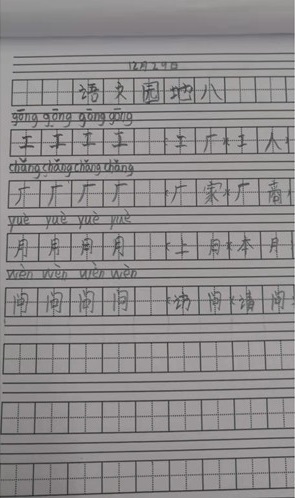 12月29日
语文园地八
gōng gōng gōng gōng
工 工 工 工 (工厂)(工人
chǎng chǎng chǎng chǎng
厂 厂 厂 厂 (厂家)(厂商
yuè yuè yuè yuè
月 月 月 月 (上月)(本月
wèn wèn wèn wèn
问 问 问 问 (访问)(请问